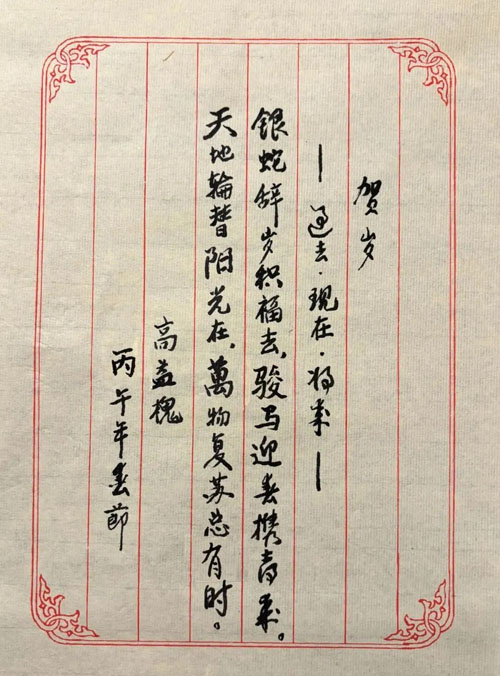 贺岁
— 過去·现在·将来 —
银蛇辞岁积福去,骏马迎春携喜来。
天地輪替阳光在,萬物复苏总有时。
高益槐
丙午年春節